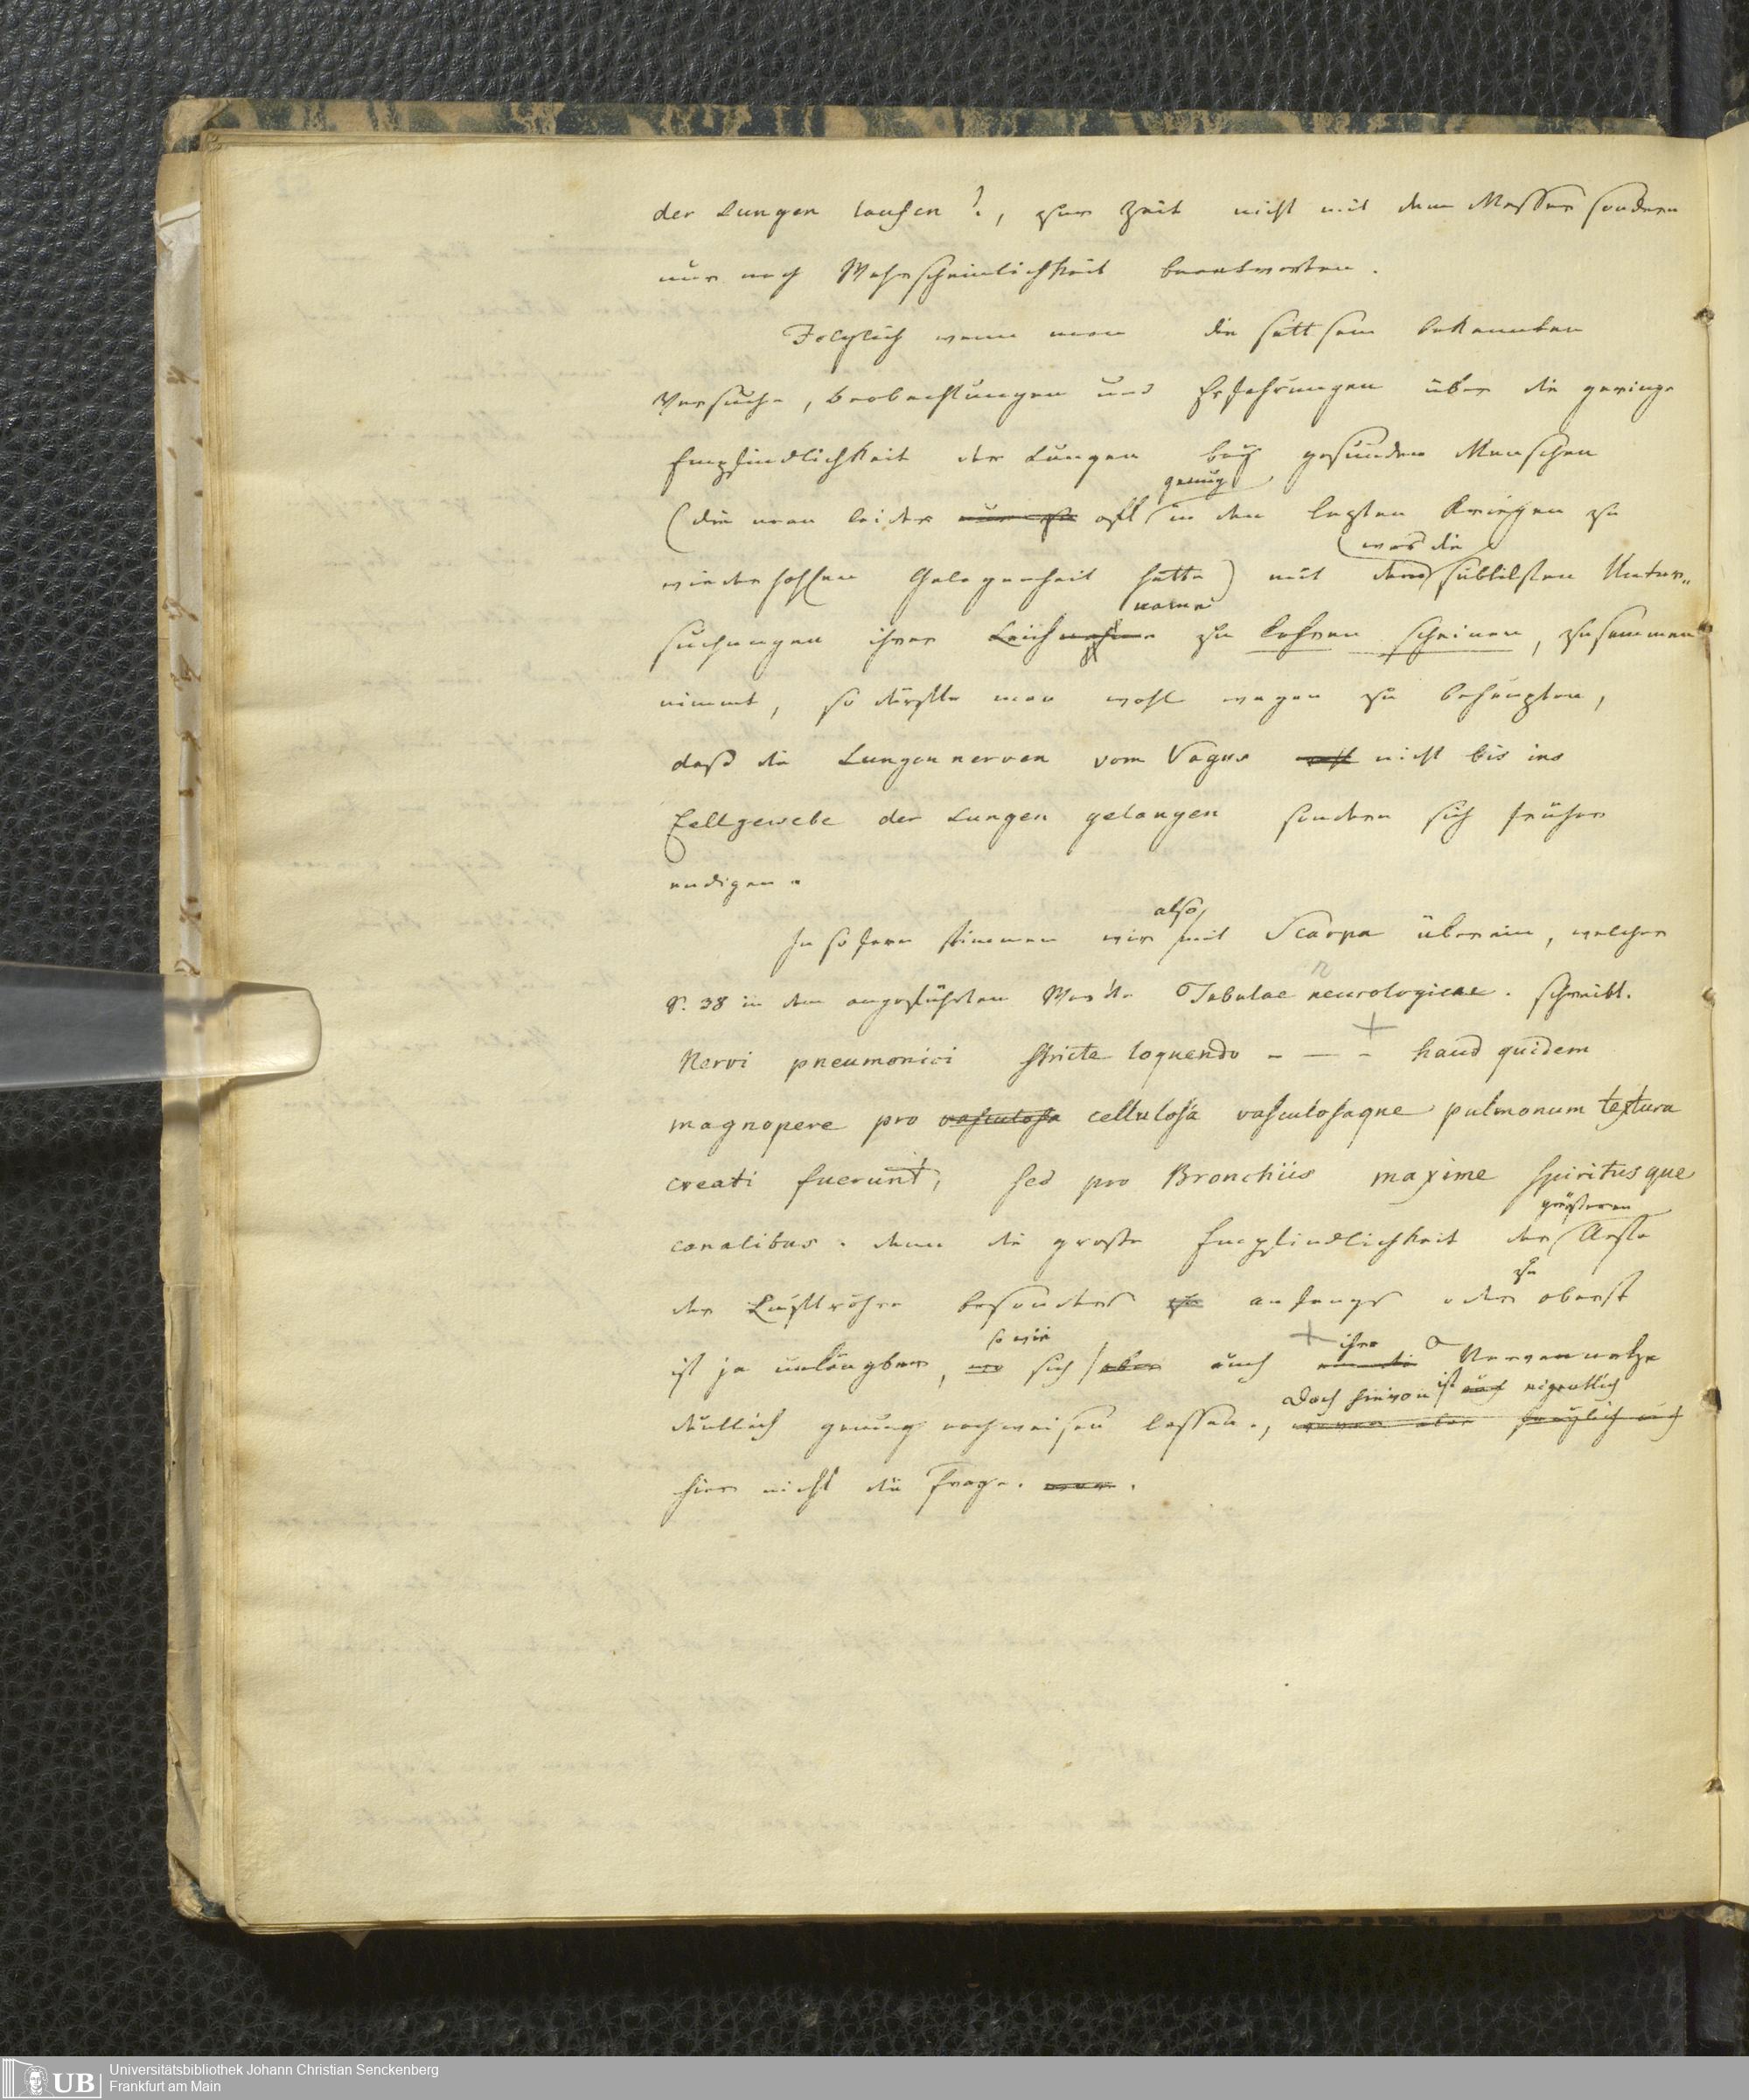 der Lungen laufen?, zur Zeit nicht mit dem Messer sondern
nur nach Wahrscheinlichkeit beantworten.
Folglich wenn man die sattsam bekannten
Versuche, Beobachtungen und Erfahrungen über die geringe
Empfindlichkeit der Lungen beÿ gesunden Menschen
genug
(die man leider oft in den lezten Kriegen zu
was die
wiederhohlen Gelegenheit hatte) mit dem subtilsten Unter„
suchungen ihrer Leich zu lehren scheinen, zusammen
nimmt, so dürfte man wohl wagen zu behaupten,
daß die Lungennerven vom Vagus nicht bis ins
Zellgewebe der Lungen gelangen sondern sich früher
endigen.
also
In so fern stimmen wir mit Scarpa überein, welcher
S. 38 in dem angeführten Werke Tabulae neurologicae. schreibt.
Nervi pneumonici stricte loquendo - — - haud quidem
magnopere pro vasculosa cellulosa vasculosaque pulmonum textura
creati fuerunt, sed pro Bronchiis maxime spiritusque
größeren
canalibus. denn die große Empfindlichkeit der Aeste
zu
der Luftröhre besonders zu anfangs oder oberst
so wie ihre
ist ja unläugbar, wo sich aber auch Nervennetze
Doch hievon ist auch eigentlich
deutlich genug nachweisen lassen.,
hier nicht die Frage.
Universitätsbibliothek Johann Christian Senckenberg
Frankfurt am Main
UB